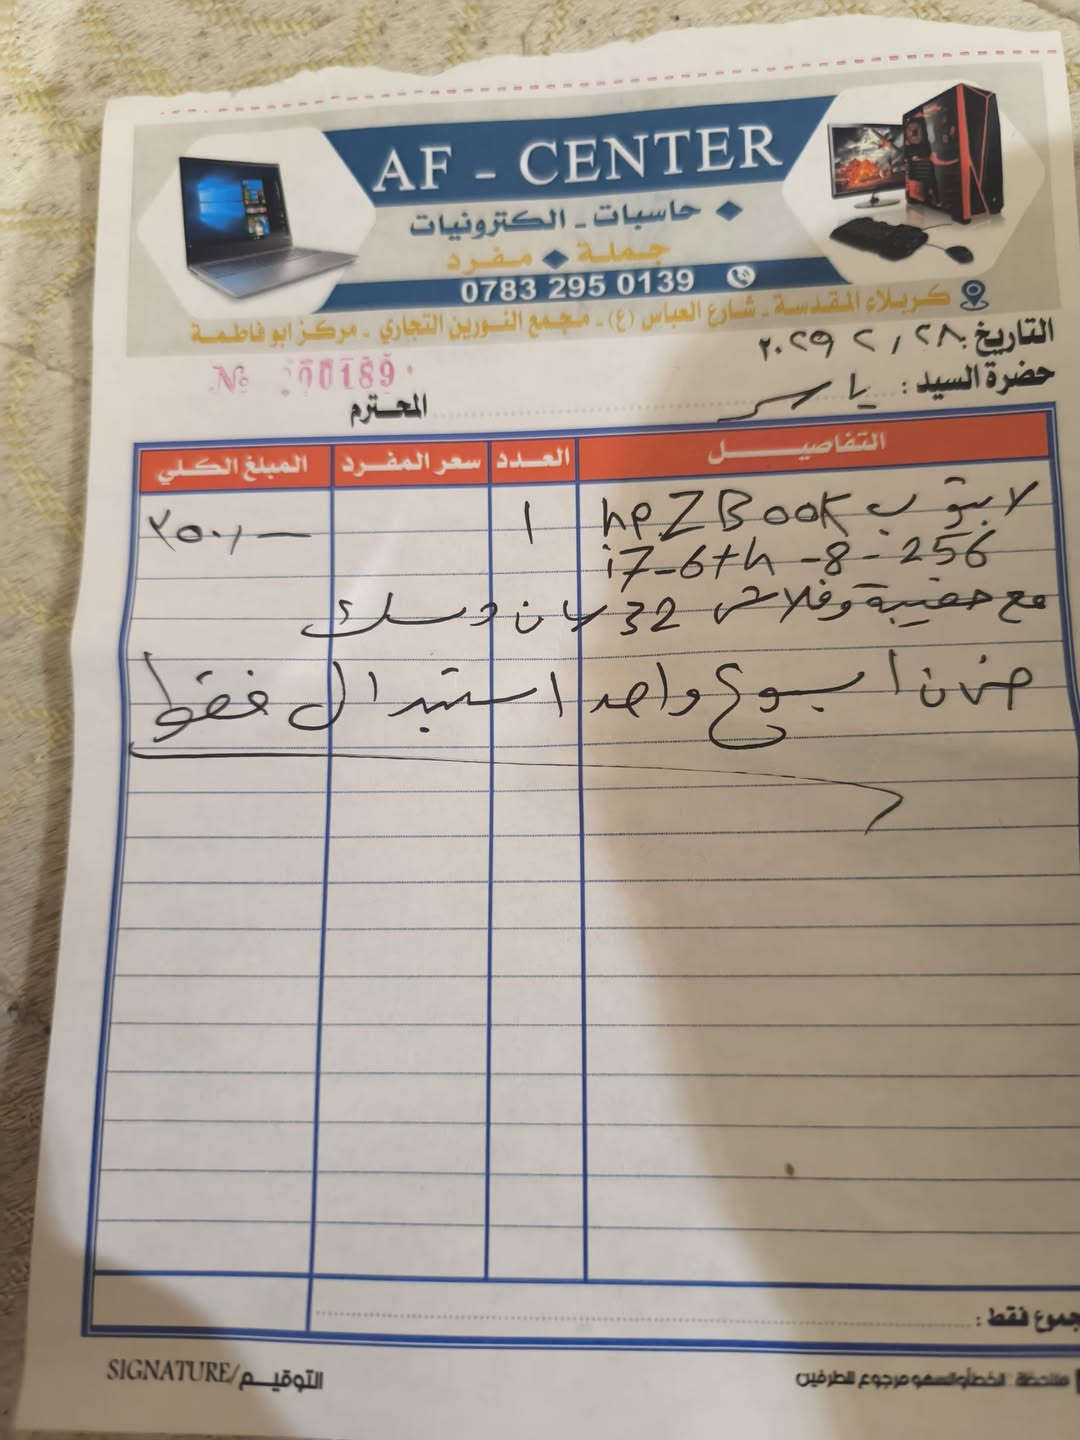 AF - CENTER
حاسبات - الكترونيات
جملة ◆ مفرد
0783 295 0139
كربلاء المقدسة - شارع العباس (ع) - مجمع النورين التجاري - مركز ابو فاطمة
التاريخ: ٢٨ / ٢
№ 00189
حضرة السيد: ياسر المحترم
التفاصيل العدد سعر المفرد المبلغ الكلي
لابتوب hp ZBook ١
i7-6th-8-256
مع حقيبة وفلاش 32
ضمان اسبوع واحد استبدال فقط
جموع فقط:
ملاحظة: الخطأ والسهو مرجوع للطرفين
التوقيـم/SIGNATURE